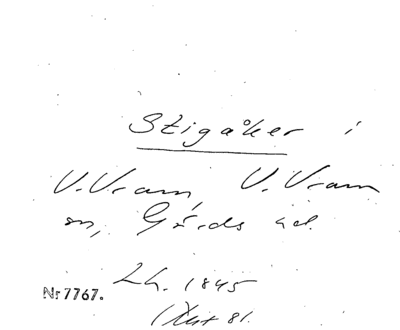 Stigåker i
V. Vram, V. Vram
sn, Gärds hd.
Lh. 1845
Nr 7767.
81.